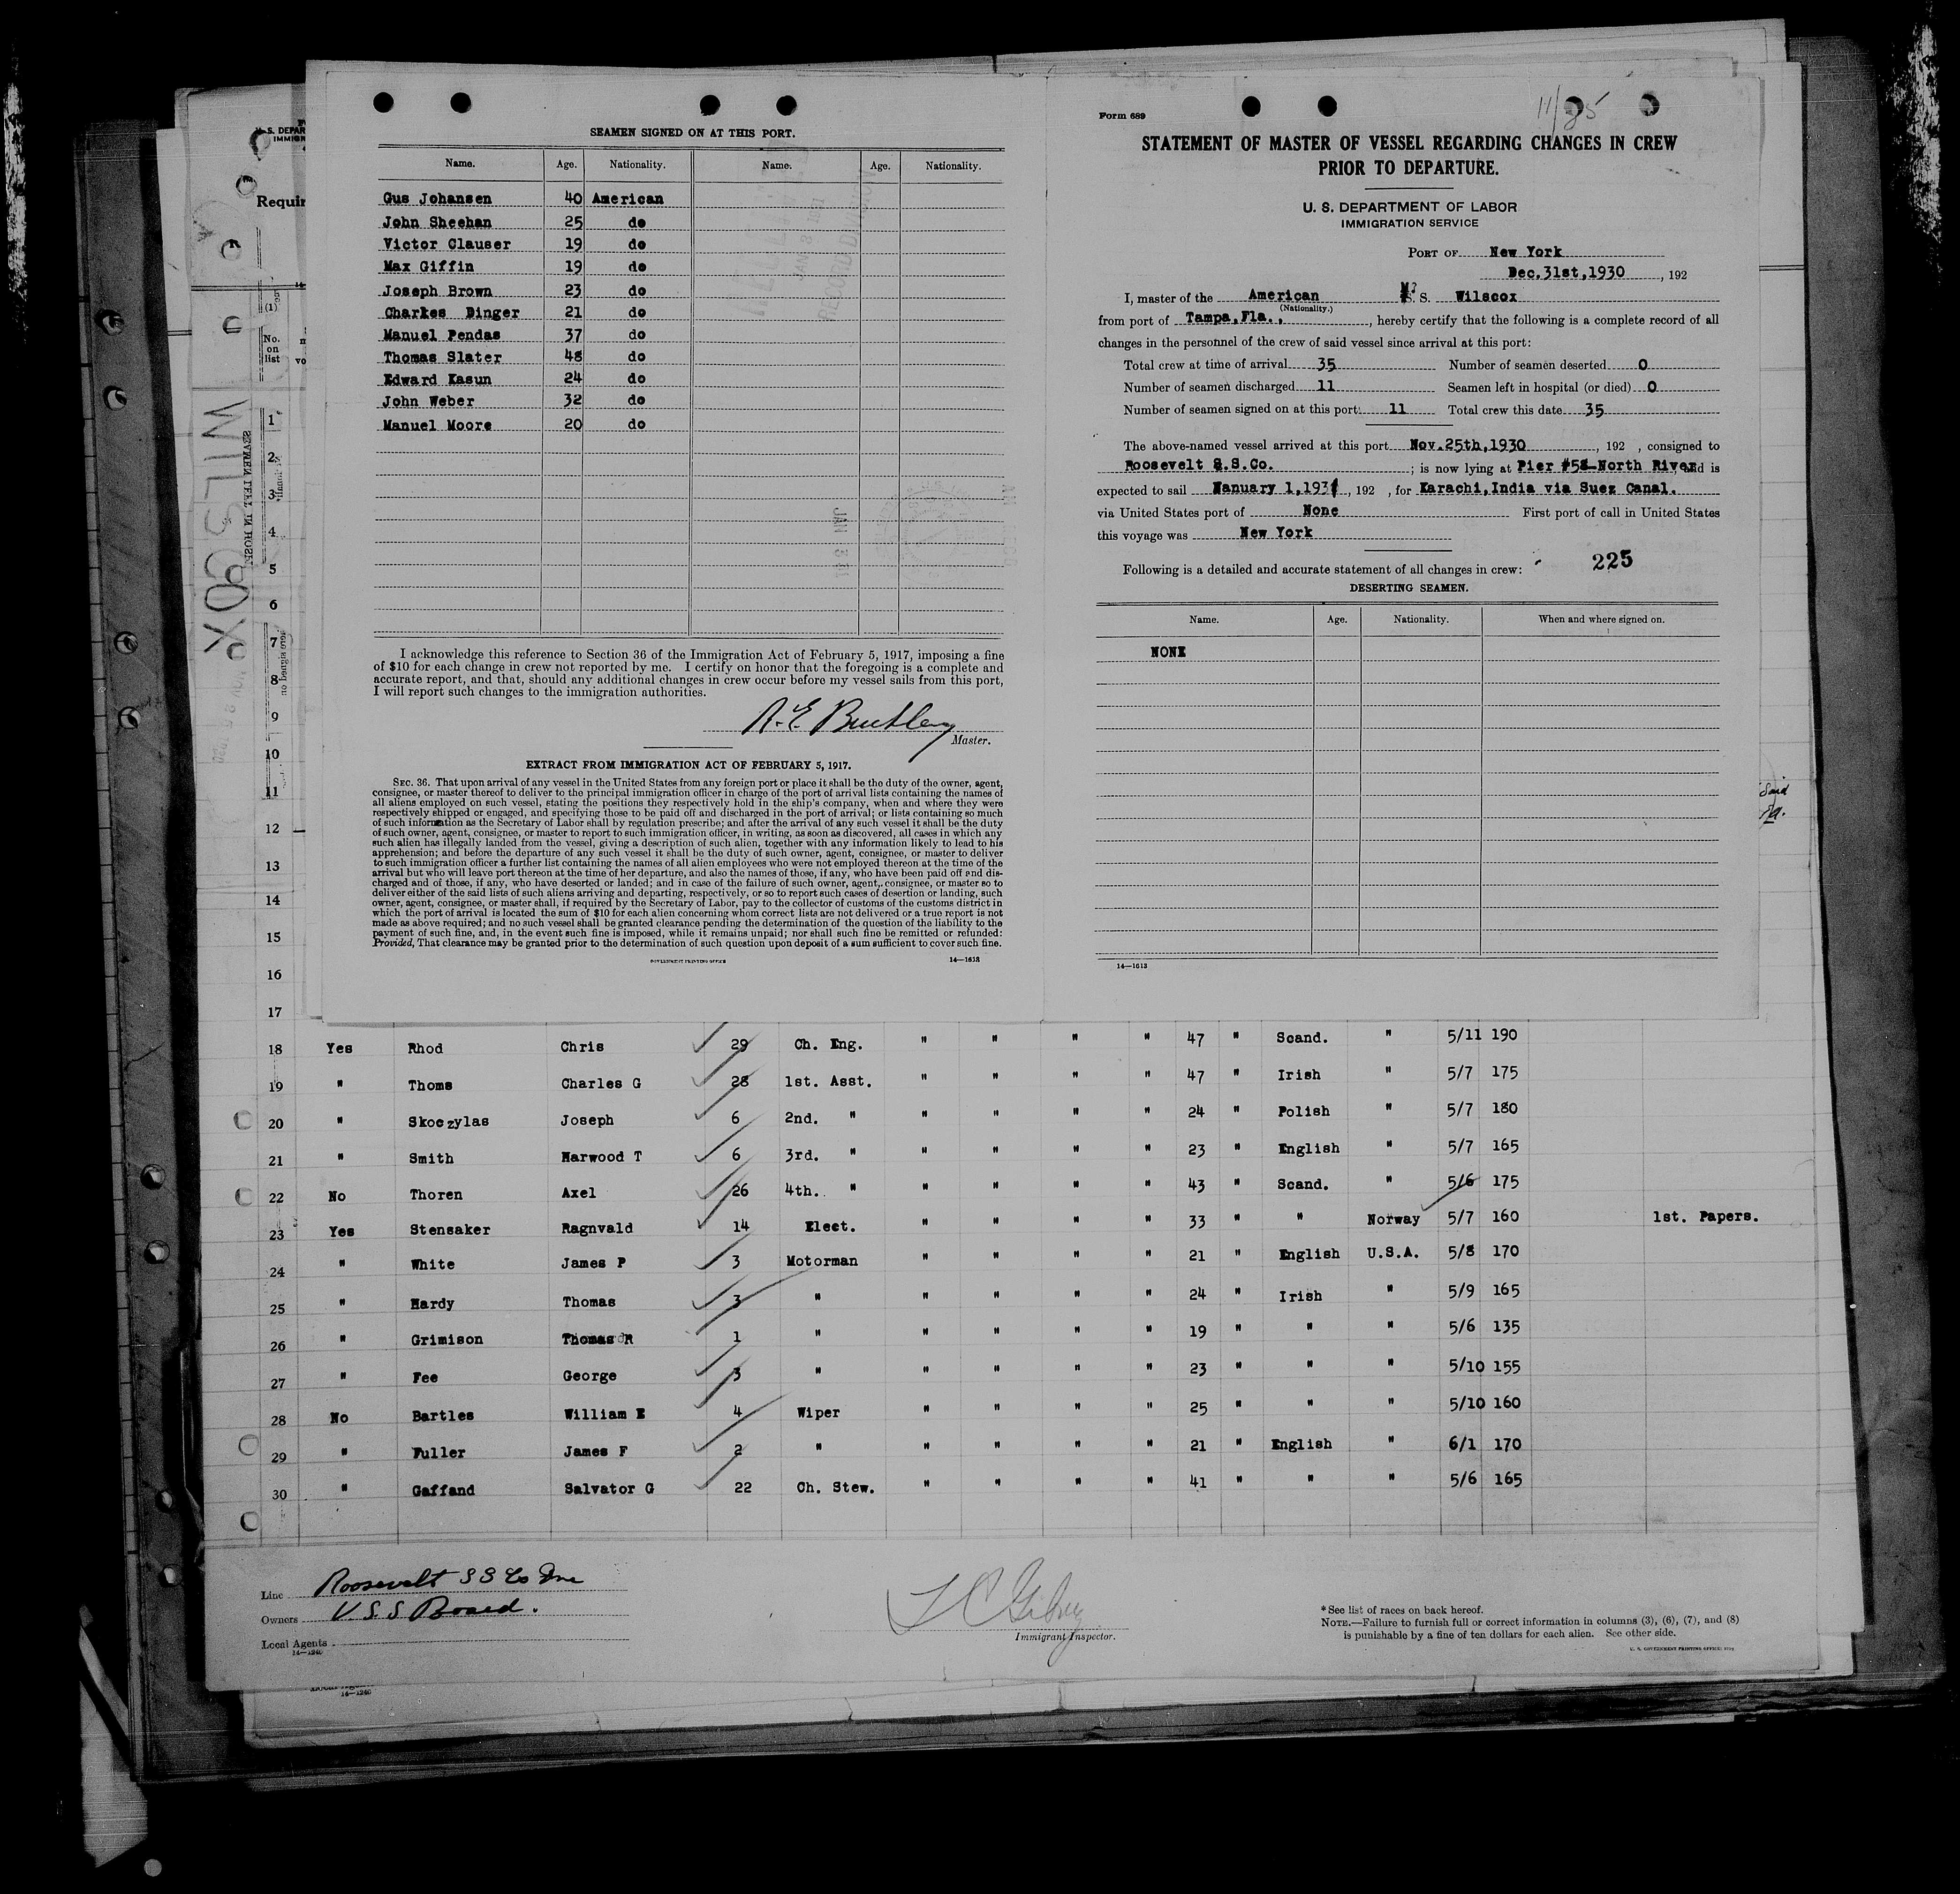 SEAMEN SIGNED ON AT THIS PORT.
Name. Age. Nationality. Name. Age. Nationality.
Gus Johansen 40 American
John Sheehan 25 do
Victor Clauser 19 do
Max Giffin 19 do
Joseph Brown 23 do
Charkes Dinger 21 do
Manuel Pendas 37 do
Thomas Slater 48 do
Edward Kasun 24 do
John Weber 32 do
Manuel Moore 20 do
I acknowledge this reference to Section 36 of the Immigration Act of February 5, 1917, imposing a fine
of $10 for each change in crew not reported by me. I certify on honor that the foregoing is a complete and
accurate report, and that, should any additional changes in crew occur before my vessel sails from this port,
I will report such changes to the immigration authorities.
Master.
EXTRACT FROM IMMIGRATION ACT OF FEBRUARY 5, 1917.
SEC. 36. That upon arrival of any vessel in the United States from any foreign port or place it shall be the duty of the owner, agent,
consignee, or master thereof to deliver to the principal immigration officer in charge of the port of arrival lists containing the names of
all aliens employed on such vessel, stating the positions they respectively hold in the ship's company, when and where they were
respectively shipped or engaged, and specifying those to be paid off and discharged in the port of arrival; or lists containing so much
of such information as the Secretary of Labor shall by regulation prescribe; and after the arrival of any such vessel it shall be the duty
of such owner, agent, consignee, or master to report to such immigration officer, in writing, as soon as discovered, all cases in which any
such alien has illegally landed from the vessel, giving a description of such alien, together with any information likely to lead to his
apprehension; and before the departure of any such vessel it shall be the duty of such owner, agent, consignee, or master to deliver
to such immigration officer a further list containing the names of all alien employees who were not employed thereon at the time of the
arrival but who will leave port thereon at the time of her departure, and also the names of those, if any, who have been paid off and dis-
charged and of those, if any, who have deserted or landed; and in case of the failure of such owner, agent, consignee, or master so to
deliver either of the said lists of such aliens arriving and departing, respectively, or so to report such cases of desertion or landing, such
owner, agent, consignee, or master shall, if required by the Secretary of Labor, pay to the collector of customs of the customs district in
which the port of arrival is located the sum of $10 for each alien concerning whom correct lists are not delivered or a true report is not
made as above required; and no such vessel shall be granted clearance pending the determination of the question of the liability to the
payment of such fine, and, in the event such fine is imposed, while it remains unpaid; nor shall such fine be remitted or refunded:
Provided, That clearance may be granted prior to the determination of such question upon deposit of a sum sufficient to cover such fine.
GOVERNMENT PRINTING OFFICE 14—1613
Form 689 11/25
STATEMENT OF MASTER OF VESSEL REGARDING CHANGES IN CREW
PRIOR TO DEPARTURE.
U. S. DEPARTMENT OF LABOR
IMMIGRATION SERVICE
PORT OF New York
Dec,31st,1930, 192
I, master of the American S. S. Wilscox
(Nationality.)
from port of Tampa,Fla., , hereby certify that the following is a complete record of all
changes in the personnel of the crew of said vessel since arrival at this port:
Total crew at time of arrival 35 Number of seamen deserted 0
Number of seamen discharged 11 Seamen left in hospital (or died) 0
Number of seamen signed on at this port 11 Total crew this date 35
The above-named vessel arrived at this port Nov.25th,1930, 192 , consigned to
Roosevelt S.S.Co. ; is now lying at Pier #58 North River and is
expected to sail January 1,1931, 192 , for Karachi,India via Suez Canal.
via United States port of None First port of call in United States
this voyage was New York
Following is a detailed and accurate statement of all changes in crew: 225
DESERTING SEAMEN.
Name. Age. Nationality. When and where signed on.
NONE
14—1613
WILSCOX
Requir
(1)
No. on list
1
2
3
4
5
6
7
8
9
10
11
12
13
14
15
16
17
18 Yes Rhod Chris 29 Ch. Eng. " " " " 47 " Scand. " 5/11 190
19 " Thoms Charles G 28 1st. Asst. " " " " 47 " Irish " 5/7 175
20 " Skoczylas Joseph 6 2nd. " " " " " 24 " Polish " 5/7 180
21 " Smith Harwood T 6 3rd. " " " " " 23 " English " 5/7 165
22 No Thoren Axel 26 4th. " " " " " 43 " Scand. " 5/6 175
23 Yes Stensaker Ragnvald 14 Elect. " " " " 33 " " Norway 5/7 160 1st. Papers.
24 " White James P 3 Motorman " " " 21 " English U.S.A. 5/8 170
25 " Hardy Thomas 3 " " " " " 24 " Irish " 5/9 165
26 " Grimison Thomas R 1 " " " " " 19 " " " 5/6 135
27 " Fee George 3 " " " " " 23 " " " 5/10 155
28 No Bartles William E 4 Wiper " " " " 25 " " " 5/10 160
29 " Fuller James F 2 " " " " " 21 " English " 6/1 170
30 " Gaffand Salvator G 22 Ch. Stew. " " " " 41 " " " 5/6 165
Line Roosevelt S S Co Inc
Owners U.S.S Board.
Local Agents
14—1240
Immigrant Inspector.
* See list of races on back hereof.
NOTE.—Failure to furnish full or correct information in columns (3), (6), (7), and (8)
is punishable by a fine of ten dollars for each alien. See other side.
14—1240